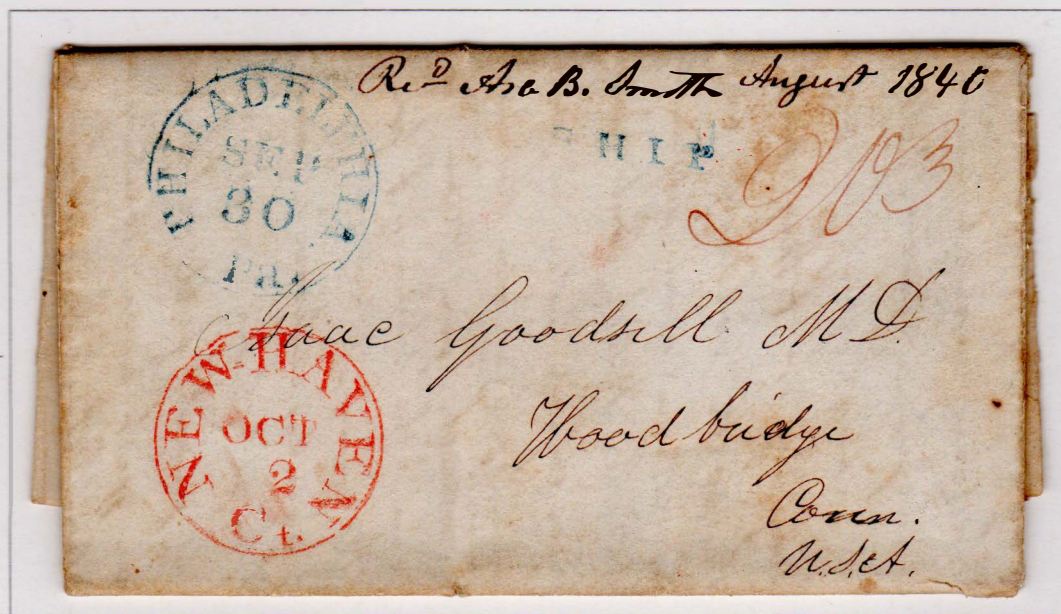 Revd Asa B. Smith August 1840
PHILADELPHIA
SEP
30
Pa.
SHIP
Isaac Goodsell M D.
Woodbridge
Conn.
U.S.A.
NEW-HAVEN
OCT
2
Ct.